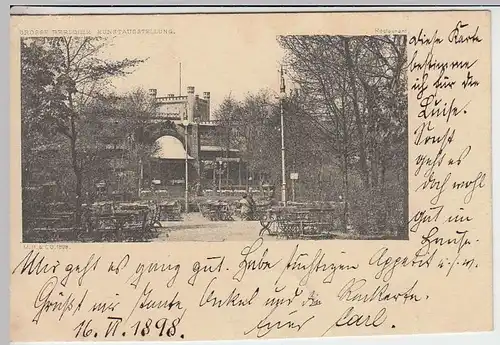 GROSSE BERLINER KUNSTAUSSTELLUNG.
Restaurant
diese Karte
bestimme
ich für die
Luise.
Sonst
geht es
doch wohl
gut im
Hause.
Mir geht es ganz gut. Habe tüchtigen Appetit u.s.w.
Grüßt mir Tante, Onkel und die
16. VI. 1898. Euer Carl.